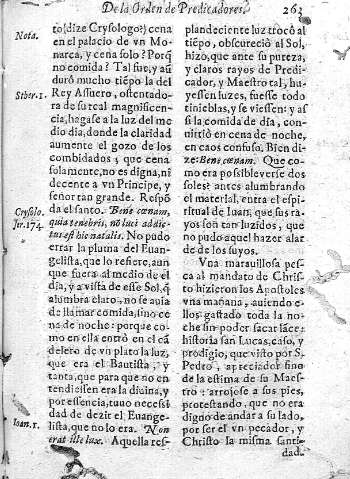 De la Orden de Predicadores. 263
Nota.
to (dize Crysologo:) cena
en el palacio de vn Mo-
narca, y cena solo? Porq̃
no comida? Tal fue, y aũ
duró mucho tiẽpo la del
Sther. 1.
Rey Assuero, ostentado-
ra de su real magnificen-
cia, hagase a la luz del me
dio dia, donde la claridad
aumente el gozo de los
combidados; que cena
solamente, no es digna, ni
decente a vn Principe, y
señor tan grande. Respõ
Crysolo.
da el santo. Bene cœnam,
ser. 174.
quia tenebris, nō luci addic-
tus est hic natalis. No pudo
errar la pluma del Euan-
gelista, que lo refiere, aun
que fuera al medio de el
dia, y a vista de esse Sol, q̃
alumbra claro, no se auia
de llamar comida, sino ce
na de noche: porque co-
mo en ella entró en el cã
delero de vn plato la luz,
que era el Bautista, y
tanta, que para que no en
tendiessen era la diuina, y
por essencia, tuuo necessi
dad de dezir el Euange-
Ioan. 1.
lista, que no lo era. Non
erat ille lux. Aquella res-
plandeciente luz trocó al
tiẽpo, obscureció al Sol,
hizo, que ante su pureza,
y claros rayos de Predi-
cador, y Maestro tal, hu-
yessen luzes, fuesse todo
tinieblas, y se viessen: y as
si la comida de dia, con-
uirtió en cena de noche,
en caos confuso. Bien di-
ze: Bene cœnam. Que co-
mo era possible verse dos
soles? antes alumbrando
el material, entra el espi-
ritual de Iuan, que sus ra-
yos son tan luzidos, que
no pudo aquel hazer alar
de de los suyos.
Vna marauillosa pes-
ca al mandato de Chris-
to hizieron los Apostoles
vna mañana, auiendo e-
llos gastado toda la no-
che sin poder sacar lãce:
historia san Lucas, caso, y
prodigio, que visto por S.
Pedro, apreciador fino
de la estima de su Maes-
tro: arrojese a sus pies,
protestando, que no era
digno de andar a su lado,
por ser el vn pecador, y
Christo la misma santi-
dad.